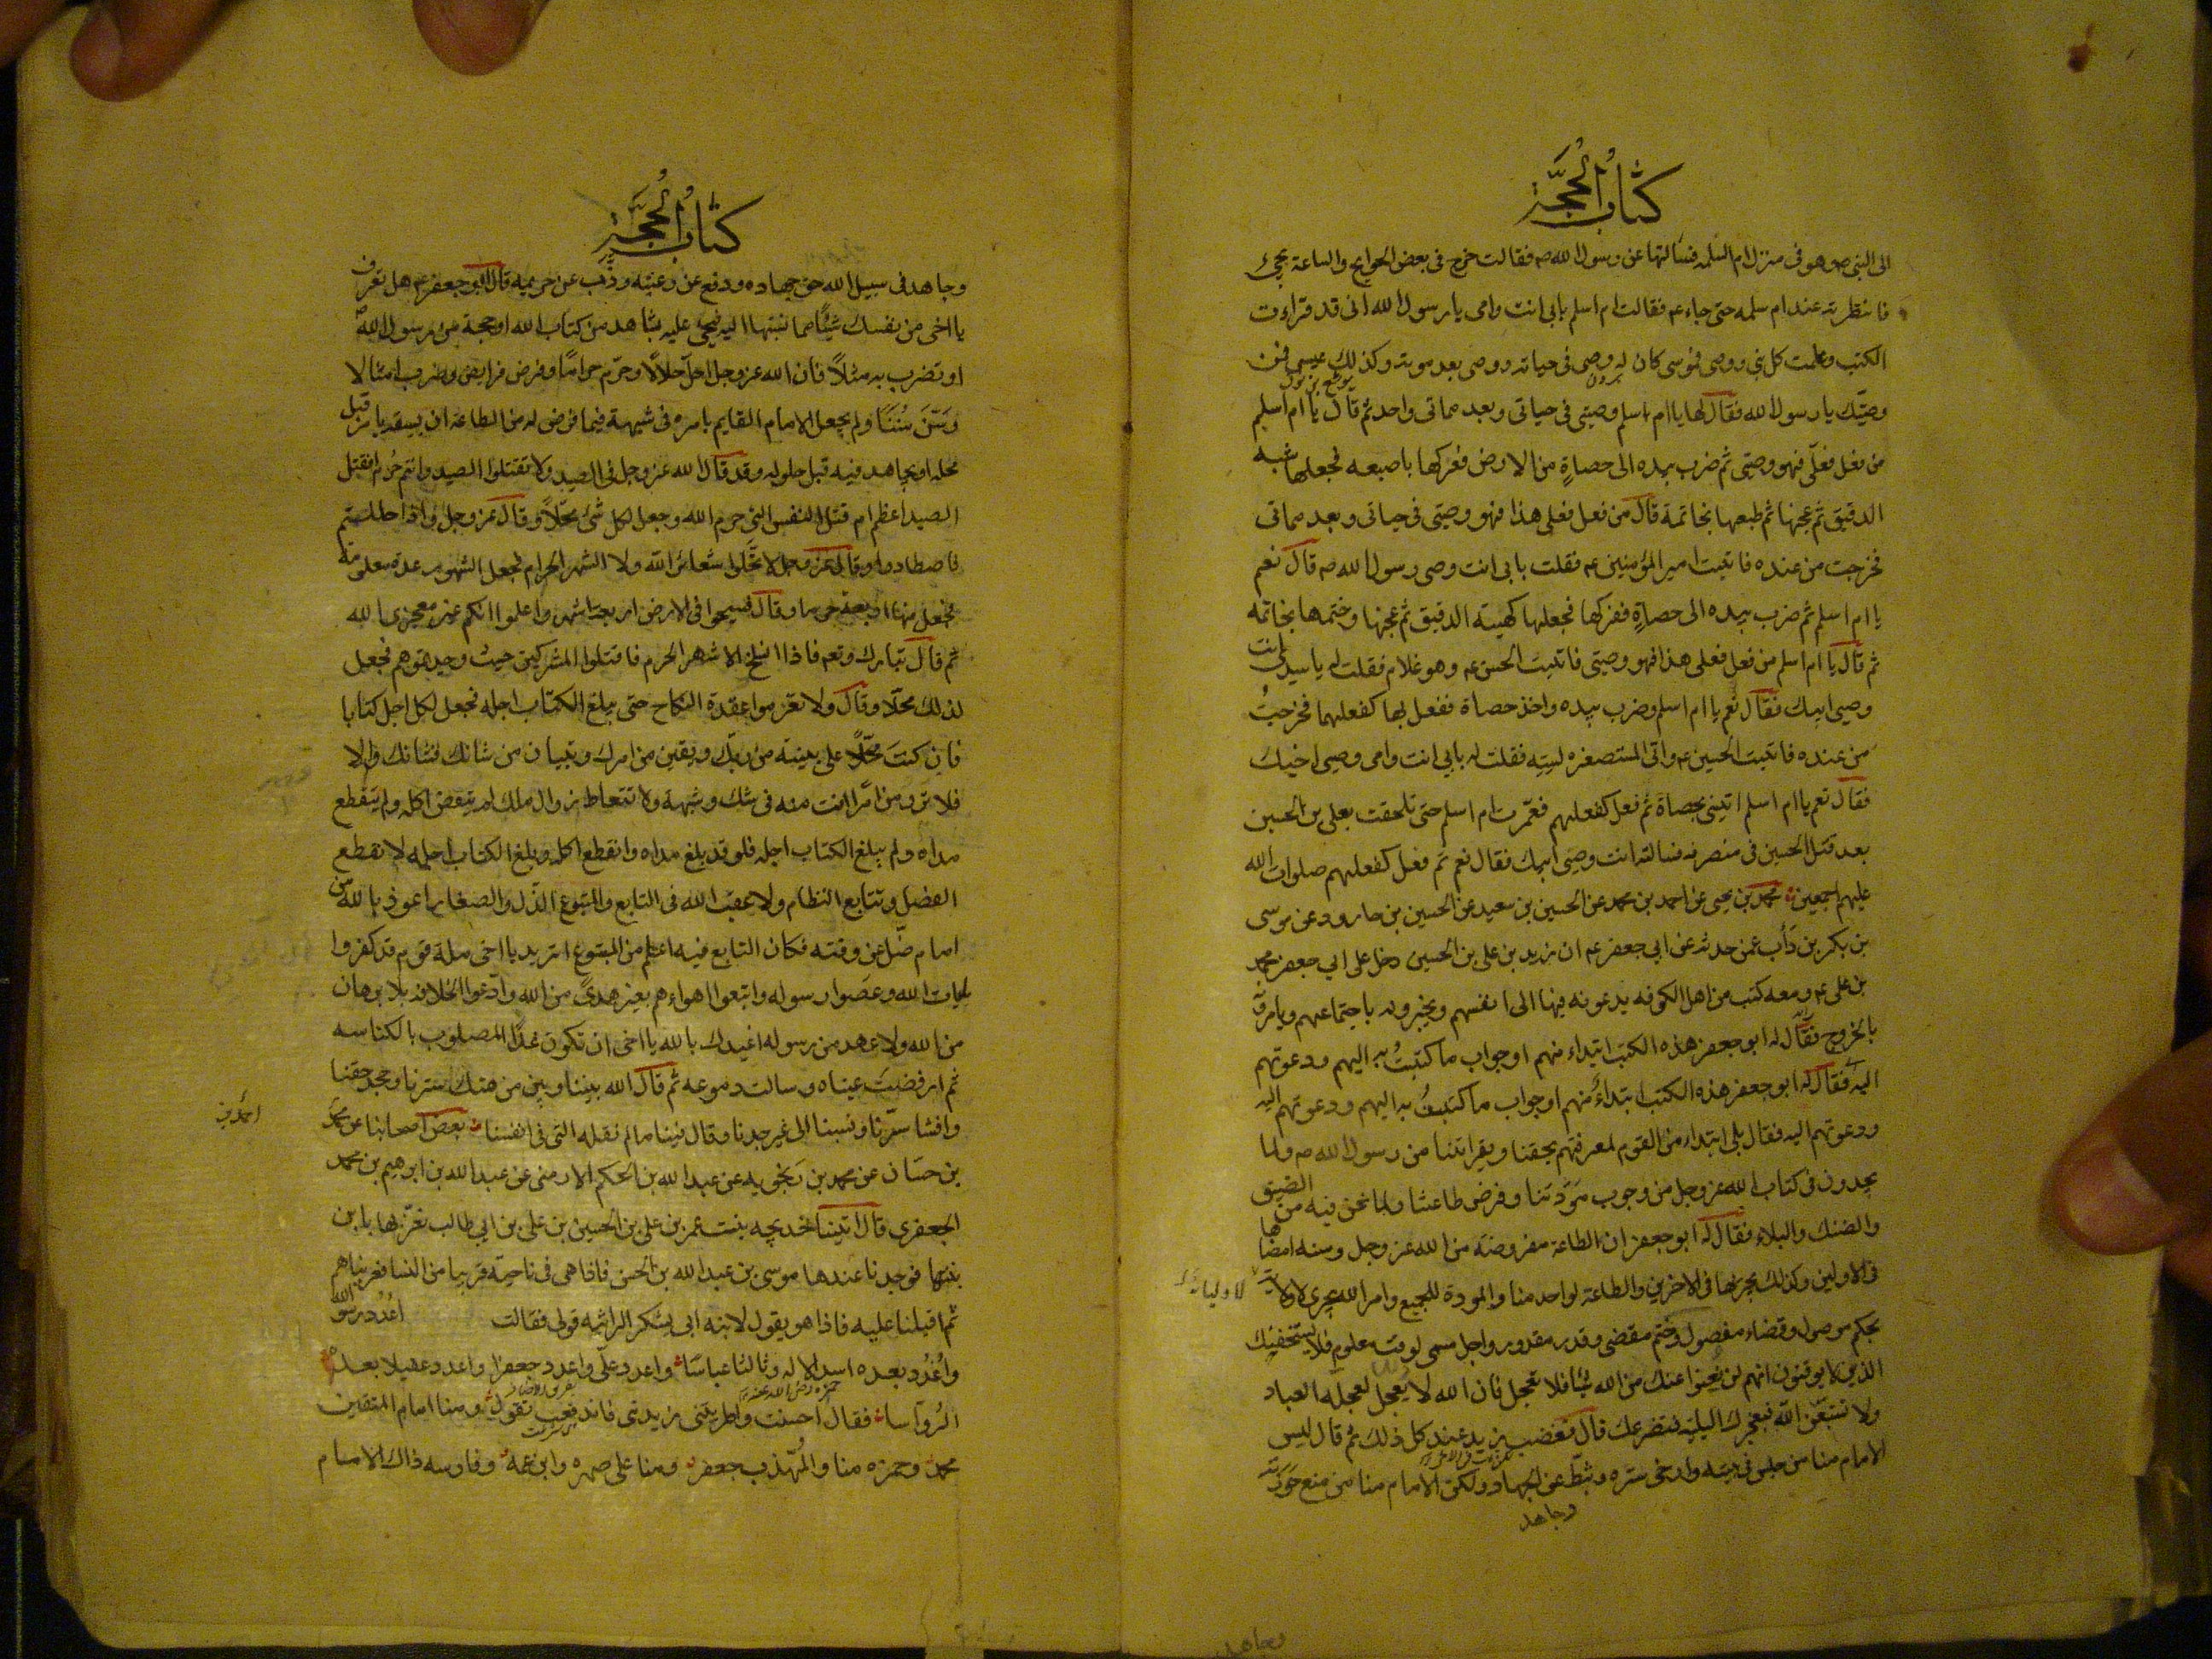 كتاب الحجة
الى النبي ص وهو في منزل ام السلمه فسالتها عن رسول الله ص فقالت خرج في بعض الحوايج والساعة يجئ
فانتظرته عند ام سلمه حتى جاء ع فقالت ام اسلم بابى انت وامى يا رسول الله انى قد قراءت
الكتب وعلمت كل نبي ووصى فموسى كان له وصى في حياته ووصى بعد موته وكذلك عيسى فمن
وصيّك يا رسول الله فقال لها يا ام اسلم وصيتى في حياتى وبعد مماتى واحد ثم قال يا ام اسلم
من فعل فعلى فهو وصيتى ثم ضرب بيده الى حصاةٍ من الارض ففركها باصبعه فجعلها شبه
الدقيق ثم عجنها ثم طبعها بخاتمة قال من فعل فعلى هذا فهو وصيتى في حياتى وبعد مماتى
فخرجت من عنده فاتيت امير المؤمنين ع فقلت بابى انت وصى رسول الله ص قال نعم
يا ام اسلم ثم ضرب بيده الى حصاةٍ ففركها فجعلها كهيئة الدقيق ثم عجنها وختمها بخاتمه
ثم قال يا ام اسلم من فعل فعلى هذا فهو وصيتى فاتيت الحسن ع وهو غلام فقلت له يا سيدى انت
وصى ابيك فقال نعم يا ام اسلم وضرب بيده واخذ حصاة ففعل بها كفعلهما فخرجتُ
من عنده فاتيت الحسين ع وانى لمستصغره لسِنِه فقلت له بابي انت وامى وصى اخيك
فقال نعم يا ام اسلم ايتينى بحصاة ثم فعل كفعلهم فعمّرت ام اسلم حتى تلحقت بعلى بن الحسين
بعد قتل الحسين في منصرفه فسالته انت وصى ابيك فقال نعم ثم فعل كفعلهم صلوات الله
عليهم اجمعين محمد بن يحيى عن احمد بن محمد عن الحسين بن سعيد عن الحسين بن جارود عن موسى
بن بكر بن دَأب عمن حدثه عن ابي جعفر ع ان زيد بن على بن الحسين دخل على ابي جعفر محمد
بن على ع ومعه كتب من اهل الكوفه يدعونه فيها الى انفسهم ويخبرونه باجتماعهم ويامرونه
بالخروج فقال له ابو جعفر هذه الكتب ابتداء منهم او جواب ما كتبتُ به اليهم ودعوتهم
اليه فقال له ابو جعفر هذه الكتب ابتداءٌ منهم او جواب ما كتبتُ به اليهم ودعوتهم اليه
ودعوتهم اليه فقال بلى ابتداء من القوم لمعرفتهم بحقنا وبقرابتنا من رسول الله ص ولما
يجدون في كتاب الله عز وجل من وجوب مَودّتنا وفرض طاعتنا ولما نحن فيه من الضيق
والضنك والبلاء فقال له ابو جعفر ان الطاعة مفروضة من الله عز وجل وسنه امضاها
في الاولين وكذلك يجريها في الاخرين والطاعة لواحد منا والمودة للجميع وامر الله يجرى لاوليائه
بحكم موصول وقضاء مفصول وحَتم مقضى وقدر مقدور واجل مسمى لوقت معلوم فلا يستخفنك
الذين لا يوقنون انهم لن يغنوا عنك من الله شيئا فلا تعجل فان الله لا يعجل لعجله العباد
ولا تسبقنّ الله فتعجزك البلية فتصرعك قال فغضب زيد عند كل ذلك ثم قال ليس
الامام منا من جلس في بيته وارخى ستره وثبّط عن الجهاد ولكن الامام منا من منع حَوزته
وجاهد
كتاب الحجة
وجاهد في سبيل الله حق جهاده ودفع عن رعيّته وذَّب عن حريمه قال ابو جعفر ع هل تعرف
يا اخى من نفسك شيئًا مما نسبتها اليه فتجئ عليه بشاهد من كتاب الله او حجة من رسول الله ص
او تضرب به مثلاً فان الله عز وجل احلّ حلالًا وحرّم حرامًا وفرض فرايض وضرب امثالا
وسَنَّ سُنَنًا ولم يجعل الامام القايم بامره في شبهة فيما فرض له من الطاعة ان يسبقه بامر قبل
محله او يجاهد فيه قبل حلوله وقد قال الله عز وجل في الصيد ولا تقتلوا الصيد وانتم حُرم افقتل
الصيد اعظم ام قتل النفس التى حرم الله وجعل لكل شئ محلّاً وقال عز وجل واذا حللتم
فاصطادوا وقال عز وجل لا تحلّوا شعائر الله ولا الشهر الحرام فجعل الشهور عدة معلومة
فجعل منها اربعة حرما وقال فسيحوا في الارض اربعة اشهر واعلموا انكم غير معجزى الله
ثم قال تبارك وتع فاذا انسلخ الاشهر الحرم فاقتلوا المشركين حيث وجدتموهم فجعل
لذلك محلّا وقال ولا تعزموا عقدة النكاح حتى يبلغ الكتاب اجله فجعل لكل اجل كتابا
فان كنتَ على بينة من ربّك ويقين من امرك وتبيان من شانك فشانك والا
فلا ترومن امرًا انت منه في شك وشبهة ولا تتعاط زوال ملك لم ينقض اكله ولم ينقطع
مداه ولم يبلغ الكتاب اجله فلو قد بلغ مداه وانقطع اكله وبلغ الكتاب اجله لانقطع
الفصل وتتابع النظام ولاعقب الله في التابع والمتبوع الذل والصغار اعوذ بالله من
امام ضّل عن وقته فكان التابع فيه اعلم من المتبوع اتريد يا اخى ملة قوم قد كفروا
بايات الله وعصوا رسوله واتبعوا اهواءهم بغير هدىً من الله وادّعوا الخلافة بلا برهان
من الله ولا عهد من رسوله اعيذك بالله يا اخى ان تكون غدًا المصلوب بالكناسه
ثم ارفضت عيناه وسالت دموعه ثم قال الله بيننا وبين من هتك سترنا وجحد حقنا
وافشا سرّنا ونسبنا الى غير جدنا وقال فينا ما لم نقله التى في انفسنا بعض اصحابنا عن محمد
احمد بن
بن حسّان عن محمد بن رنجويه عن عبد الله بن الحكم الارمنى عن عبد الله بن ابرهيم بن محمد
الجعفرى قال اتينا خديجه بنت عمر بن على بن الحسين بن على بن ابي طالب نعزّيها بابن
بنتها فوجدنا عندها موسى بن عبد الله بن الحسن فاذا هى في ناحية قريبا من النسا فعزيناهم
ثم اقبلنا عليه فاذا هو يقول لابنه ابى يشكر الراثيه قولى فقالت اعُدُد رسول الله
واعُدُد بعده اسد الاله وثالثا عباسًا واعدد علّى واعدد جعفرا واعدد عقيلا بعده
الرُوآسا فقال احسنت واطربتنى زيدنى فاندفعت تقول ومنا امام المتقين
محمد وحمزه منا والمُهذب جعفر ومنا على صهره وابن عمه وفارسه ذاك الامام